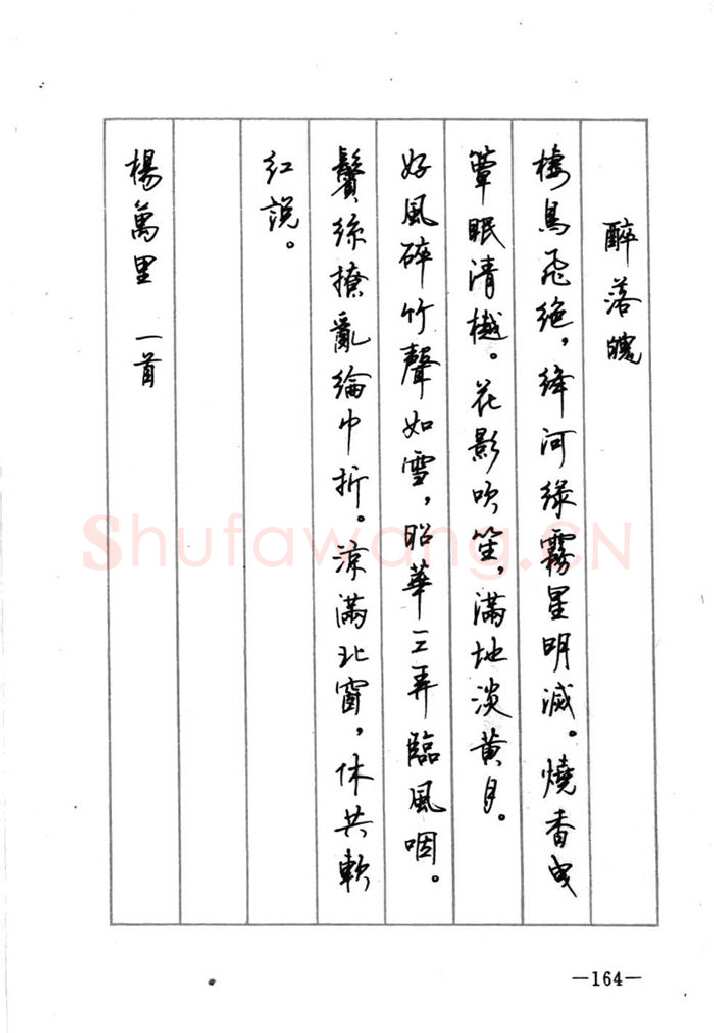 醉落魄
棲鳥飛絶，絳河綠霧星明滅。燒香曳
簟眠清樾。花影吹笙，滿地淡黃月。
好風碎竹聲如雪，昭華三弄臨風咽。
鬢絲撩亂綸巾折。涼滿北窗，休共軟
紅說。
楊萬里 一首
Shufawang.CN
—164—